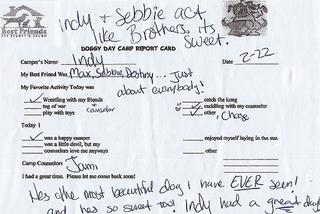 Indy & Sebbie act
like Brothers, its
sweet.
Best Friends
DOGGY DAY CAMP REPORT CARD
Camper's Name Indy Date 2-22
My Best Friend Was Max, Sebbie, Destiny... Just
about everybody!
My Favorite Activity Today was
✓ Wrestling with my friends
catch the kong
tug of war
✓ cuddling with my counselor
play with toys
counselor
✓ other, Chase
Today I
✓ was a happy camper
enjoyed myself laying in the sun
was a little devil, but my
other
counselors love me anyways
Camp Counselors Jami
I had a great time. Please let me come back soon!
He's the most beautiful dog I have EVER seen!
and he's so sweet too! Indy had a great day!